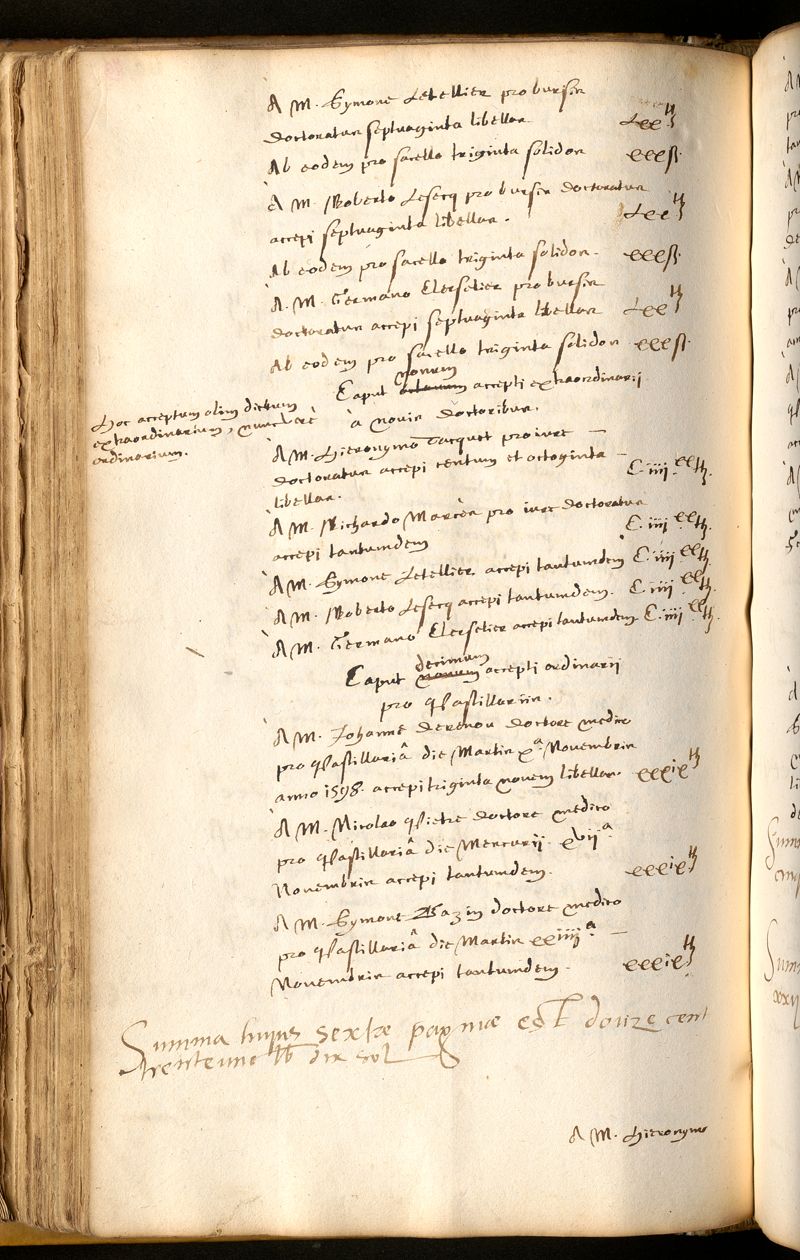 A M. Symone Letellier pro bursis
doctoratus septuaginta libellas. Lxx lt
Ab eodem pro sacello triginta solidos xxx s.
A M. Roberto Lesecq pro bursis doctoratus
accepi septuaginta libellas. Lxx lt
Ab eodem pro sacello triginta solidos. xxx s.
A. M. Germano Clerselier pro bursis
doctoratus accepi septuaginta libellas Lxx lt
Ab eodem pro sacello triginta solidos xxx s.
nonum
Caput octavum accepti extraordinarii
à novis doctoribus.
Hoc acceptum olim dictum
extraordinarium, nunc verè
ordinarium.
A M. Hieronymo Jacquet pro iure
doctoratus accepi centum et octoginta
libellas. C. iiii xx lt.
A M. Richardo Marcès pro iure doctoratus
accepi tantumdem C. iiii xx lt.
A M. Symone Letellier accepi tantumdem C. iiii xx lt.
A M. Roberto Lesecq accepi tantumdem. C. iiii xx lt.
A M. Germano Clerselier accepi tantumdem. C. iiii xx lt.
decimum
Caput nonum accepti ordinarii
pro Pastillariis.
A M. Johanne Derenou doctore medico
pro Pastillariâ die Martis xª. Novembris
anno 1598. accepi triginta novem libellas. xxxix lt
A M. Nicolao Pietre doctore medico
pro Pastillariâ die Mercurii xviiª
Novembris accepi tantumdem. xxxix lt
A M. Symone Bazin doctore medico
pro Pastillariâ die Martis xxiiiiª
Novembris accepi tantumdem. xxxix lt
Summa hujus sextæ paginæ est douze cent
trente une lb dix sol
A M. Hieronymo